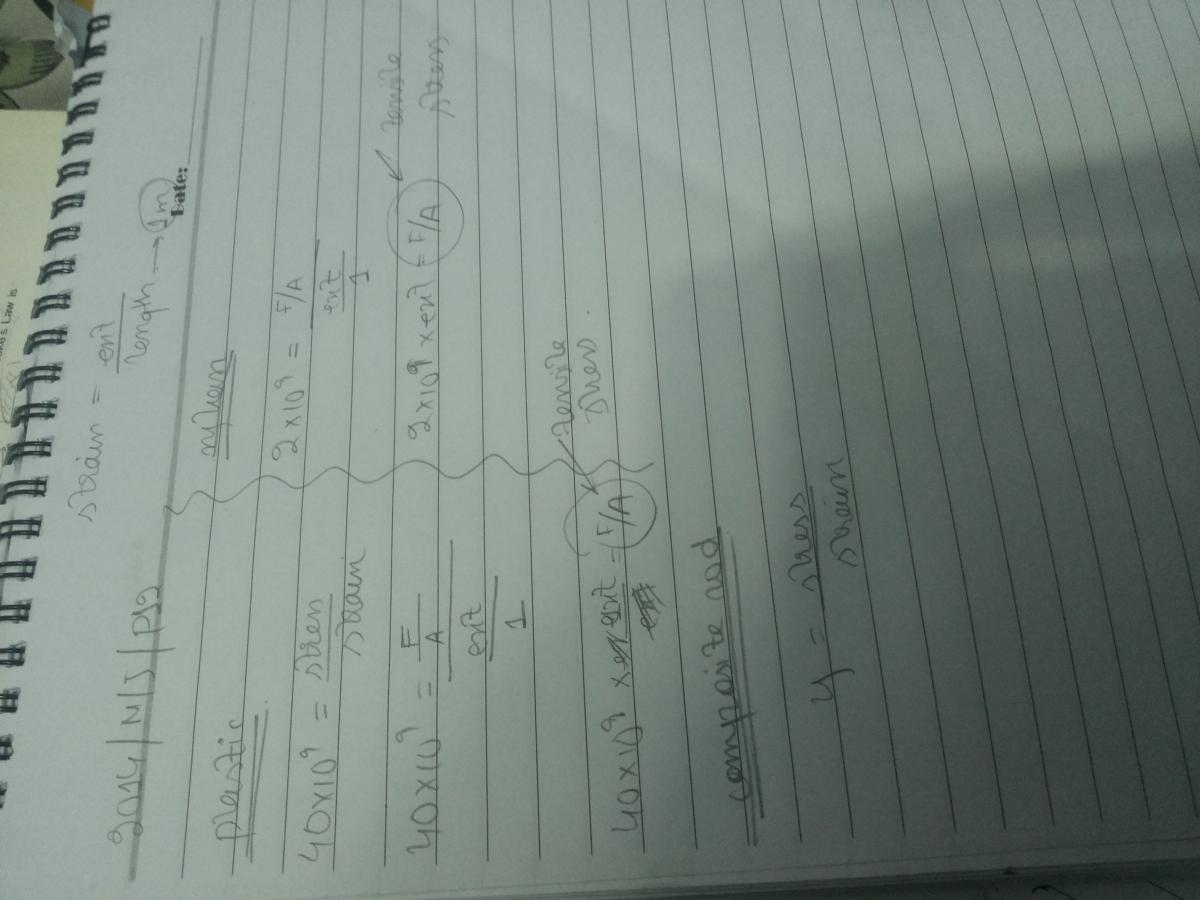 strain = ext / length → 1m
Date:
2014/N/J/P12
plastic
40×10⁹ = stress / strain
40×10⁹ = F/A / ext/1
40×10⁹ × ext = F/A
tensile stress.
2×10⁹ = F/A / ext/1
2×10⁹ × ext = F/A
tensile stress
composite rod
y = stress / strain
Law is